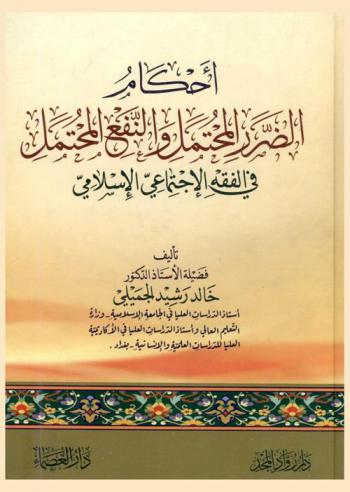 أحكام
الضرر المحتمل والنفع المحتمل
في الفقه الإجتماعي الإسلامي
تأليف
فضيلة الأستاذ الدكتور
خالد رشيد الجميلي
أستاذ الدراسات العليا في الجامعة الإسلامية - وزارة
التعليم العالي وأستاذ الدراسات العليا في الأكاديمية
العليا للدراسات العلمية والإنسانية - بغداد .
دار رواد المجد
دار العصماء